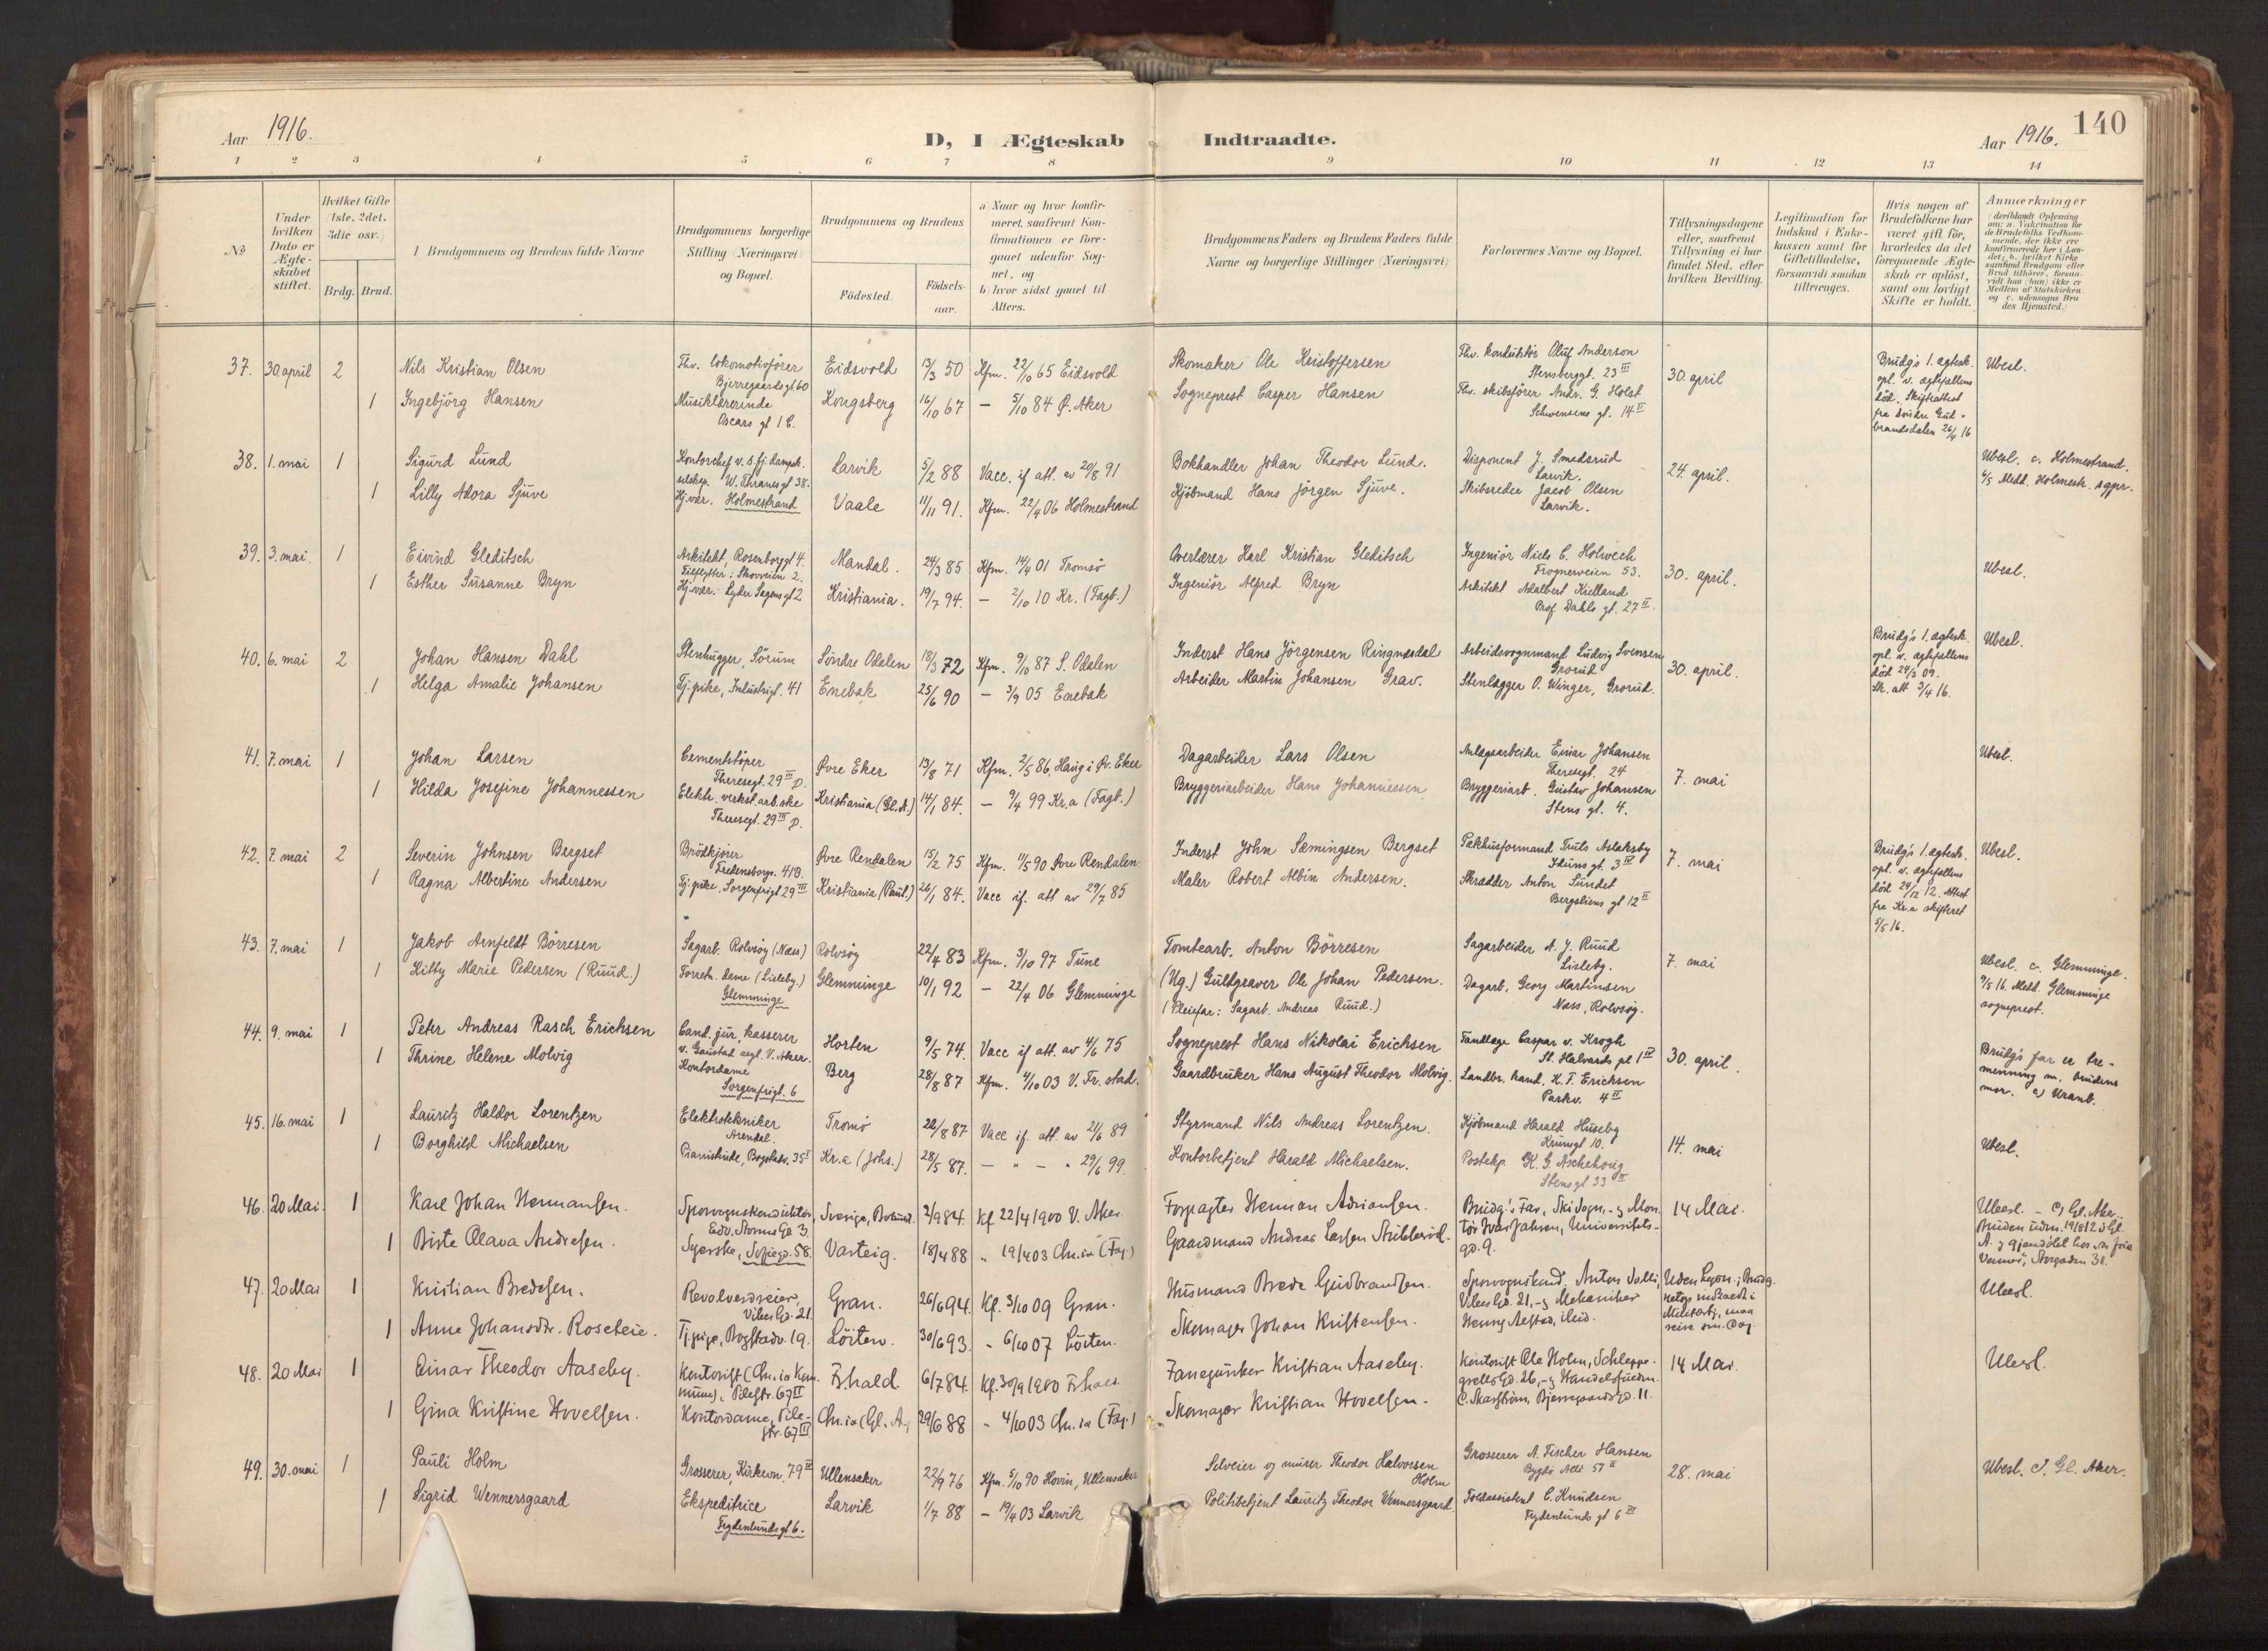 140
Aar 1916.
D, I Ægteskab Indtraadte.
Aar 1916.
1 2 3 4 5 6 7 8 9 10 11 12 13 14
No
Under hvilken Dato er Ægteskabet stiftet.
Hvilket Gifte (1ste, 2det, 3die osv.)
Brdg. Brud.
I Brudgommens og Brudens fulde Navne
Brudgommens borgerlige Stilling (Næringsvei) og Bopæl.
Brudgommens og Brudens
Födested.
Födsels-aar.
a) Naar og hvor konfirmeret, saafremt Konfirmationen er foregaaet udenfor Sognet, og
b) hvor sidst gaaet til Alters.
Brudgommens Faders og Brudens Faders fulde Navne og borgerlige Stillinger (Næringsvei)
Forlovernes Navne og Bopæl.
Tillysningsdagene eller, saafremt Tillysning ei har fundet Sted, efter hvilken Bevilling.
Legitimation for Indskud i Enkekassen samt for Giftetilladelse, forsaavidt saadan tiltrænges.
Hvis nogen af Brudefolkene har været gift før, hvorledes da det foregaaende Ægteskab er oplöst, samt om lovligt Skifte er holdt.
Anmærkninger (deriblandt Oplysning om: a. Vakcination for de Brudefolks Vedkommende, der ikke ere konfirmerede her i Landet; b. hvilket Kirkesamfund Brudgom eller Brud tilhører, forsaavidt han (hun) ikke er Medlem af Statskirken, og c. udensogns Brudes Hjemsted.)
37. 30. april 2 Nils Kristian Olsen Fhv. lokomotivfører Bjerregaardsgt 60 Eidsvold 13/3 50 Kfm. 22/10 65 Eidsvold Skomaker Ole Kristoffersen Fhv. konduktør Oluf Anderson Stensberggt. 23 III 30. april Brudg's 1. ægtesk. opl. v. ægtefællens död. Skifteattest fra söndre Gudbrandsdalen 26/4 16 Ubesl.
1 Ingebjörg Hansen Musiklærerinde Oscars gt 1 B. Kongsberg 16/10 67 — 5/10 84 Ø. Aker Sogneprest Casper Hansen Fhv. skibsfører Andr. G. Holst Schwensens gt. 14 II
38. 1. mai 1 Sigurd Lund Kontorchef v. d. fj. dampsk. selskap. W. Thranesgt 38. Larvik 5/2 88 Vacc. if att. av 20/8 91 Bokhandler Johan Theodor Lund. Disponent J. Smedsrud Larvik. 24. april. Ubesl. c. Holmestrand. 6/5 Medd. Holmestr. sgpr.
1 Lilly Adora Sjuve Hj. vær. Holmestrand Vaale 11/11 91. Kfm. 22/4 06 Holmestrand Kjöbmand Hans Jörgen Sjuve. Skibsreder Jacob Olsen Larvik.
39. 3. mai. 1 Eivind Gleditsch Arkitekt, Rosenborggt 4. Frognerveien 2. Mandal. 24/3 85 Kfm. 14/4 01 Tromsö Overlærer Karl Kristian Gleditsch Ingeniör Niels C. Holwech Frognerveien 53. 30. april. Ubesl.
1 Esther Susanne Bryn Hj. vær. Lyder Sagens gt 2 Kristiania. 19/7 94. — 2/10 10 Kr. (Fagb.) Ingeniör Alfred Bryn Arkitekt Adalbert Kielland Prof. Dahls gt. 27 II.
40. 6. mai 2 Johan Hansen Dahl Stenhugger, Sörum Söndre Odalen 18/3 72 Kfm. 9/10 87 S. Odalen Inderst Hans Jörgensen Ringnæsdal Arbeidsvognmand Ludvig Svensen Grorud 30. april. Brudg's 1. ægtesk. opl. v. ægtefællens död 24/3 09. Sk. att 3/4 16. Ubesl.
1 Helga Amalie Johansen Tj. pike, Industrigt. 41 Enebak 25/6 90 — 3/9 05 Enebak Arbeider Martin Johansen Grav. Stenlægger O. Winger, Grorud.
41. 7. mai 1 Johan Larsen Cementstöper Theresegt. 29 III Øvre Eker 13/8 71 Kfm. 2/5 86, Haug i Øv. Eker Dagarbeider Lars Olsen Anlægsarbeider Einar Johansen Theresegt. 24 7. mai Ubesl.
1 Hilda Josefine Johannessen Elektr. verkst. arb. ske Theresegt. 29 III Kristiania (Gl. A.) 14/1 84. — 9/4 99 Kr.a (Fagb.) Bryggeriarbeider Hans Johannessen Bryggeriarb. Gustav Johansen Stens gt. 4.
42. 7. mai 2 Severin Johnsen Bergset Brödkjører Fredensborgv. 41 B. Øvre Rendalen 15/2 75 Kfm. 11/5 90 Øvre Rendalen Inderst John Sæmingsen Bergset Pakhusformand Truls Aslaksby Iduns gt. 3 IV 7. mai Brudg's 1. ægtesk. opl. v. ægtefællens död 24/12 12. Attest fra Kr.a skifteret 5/5 16. Ubesl.
1 Ragna Albertine Andersen Tj. pike, Sorgenfrigt 29 III Kristiania (Paul.) 26/1 84. Vacc if. att av 29/7 85 Maler Robert Albin Andersen. Skrædder Anton Sundet Bergsliens gt 12 II
43. 7. mai 1 Jakob Arnfeldt Börresen Sagarb. Rolvsög (Næss) Rolvsög 22/4 83 Kfm. 3/10 97 Tune Tomtearb. Anton Börresen Sagarbeider A. J. Ruud Lisleby. 7. mai Ubesl. c. Glemminge. 9/5 16. Medd. Glemminge sogneprest.
1 Kitty Marie Pedersen (Ruud.) Forretn. dame (Lisleby.) Glemminge Glemminge 10/1 92 — 22/4 06 Glemminge (Ug.) Guldgraver Ole Johan Pedersen. (Pleiefar: Sagarb. Andreas Ruud.) Dagarb. Georg Martinsen Næss, Rolvsög.
44. 9. mai 1 Peter Andreas Rasch Erichsen Cand. jur, kasserer v. Gaustad asyl. V. Aker. Horten 9/5 74. Vacc if att. av 4/6 75 Sogneprest Hans Nikolai Erichsen Tandlæge Caspar v. Krogh St. Halvards pl 1 IV 30. april. Brudg's far er tremenning m. brudens mor. c) Uranb.
1 Thrine Helene Molvig Kontordame Sorgenfrigt. 6 Berg 28/8 87 Kfm. 4/10 03 V. Fr. stad. Gaardbruker Hans August Theodor Molvig. Landbr. kand. K. F. Erichsen Parkv. 4 II
45. 16. mai 1 Lauritz Haldor Lorentzen Elektrotekniker Arendal. Tromö 22/8 87 Vacc if. att. av 21/6 89 Styrmand Nils Andreas Lorentzen. Kjöbmand Harald Huseby Krumgt 10. 14. mai Ubesl.
1 Borghild Michaelsen Pianistinde, Bogstadv. 35 I Kr.a (Johs.) 28/5 87. — " — " 29/6 99. Kontorbetjent Harald Michaelsen. Postekp. K. G. Aschehoug Stensgt 33 II
46. 20 Mai. 1 Karl Johan Hermansen. Sporvognskonduktör, Edv. Storms Gd. 3. Sverige, 2/9 84. Kf 22/4 1900 V. Aker Forpagter Herman Adriansen. Brudg.'s Far, Ski Sogn, - og Montör Ivar Jahren, Universitets-gd. 9. 14 Mai. Ubesl. — c) Gl. Aker.
1 Birte Olava Andresen. Syerske, Sofiegd. 58. Varteig. 18/4 88 " 19/4 03 Chr.ia (Fag.) Gaardmand Andreas Larsen
47. 20 Mai 1 Kristian Bredesen. Revolverdreier, Vibes Gd. 21. Gran. 26/6 94. Kf. 3/10 09 Gran. Husmand Brede Gudbrandsen. Sporvognskond. Anton Volli, Vibes Gd. 21, - og Mekaniker Uden Lysn.; Brudg. netop indkaldt i Militærtj., maa reise sm. Dag Ubesl.
1 Anne Johansdtr. Roseteie. Tj. pige, Bogstadv. 19. Löiten. 30/6 93. " 6/10 07 Löiten. Skomager Johan Kristensen.
48. 20 Mai 1 Einar Theodor Aaseby. Kontorist (Chr.ia Kommune), Pilestr. 67 II Frhald. 6/7 84. Kf. 30/9 1900 Frhald Fanejunker Kristian Aaseby. Kontorist Ole Holm, Schleppegrells Gd. 26, - og Handelsfuldm. C. Skarström, Bjerregaardsgd. 11. 14 Mai. Ubesl.
1 Gina Kristine Hovelsen. Kontordame, Pilestr. 67 III. Chr.ia (Gl. A.) 29/6 88 " 4/10 03 Chr.ia (Fag.) Skomager Kristian Hovelsen.
49. 30. mai 1 Pauli Holm Grosserer, Kirkevn. 79 II Ullensaker 22/9 76 Kfm. 5/10 90 Hovin, Ullensaker Selveier og murer Theodor Halvorsen Holm Grosserer A. Fischer Hansen Bygdö Allé 57 II 28. mai Ubesl. c. Gl. Aker.
1 Sigrid Wennersgaard Ekspeditrice Frydenlundsgt 6. Larvik 1/7 88 — 19/4 03 Larvik Politibetjent Lauritz Theodor Wennersgaard. Toldassistent C. Knudsen Frydenlunds gt 6 III